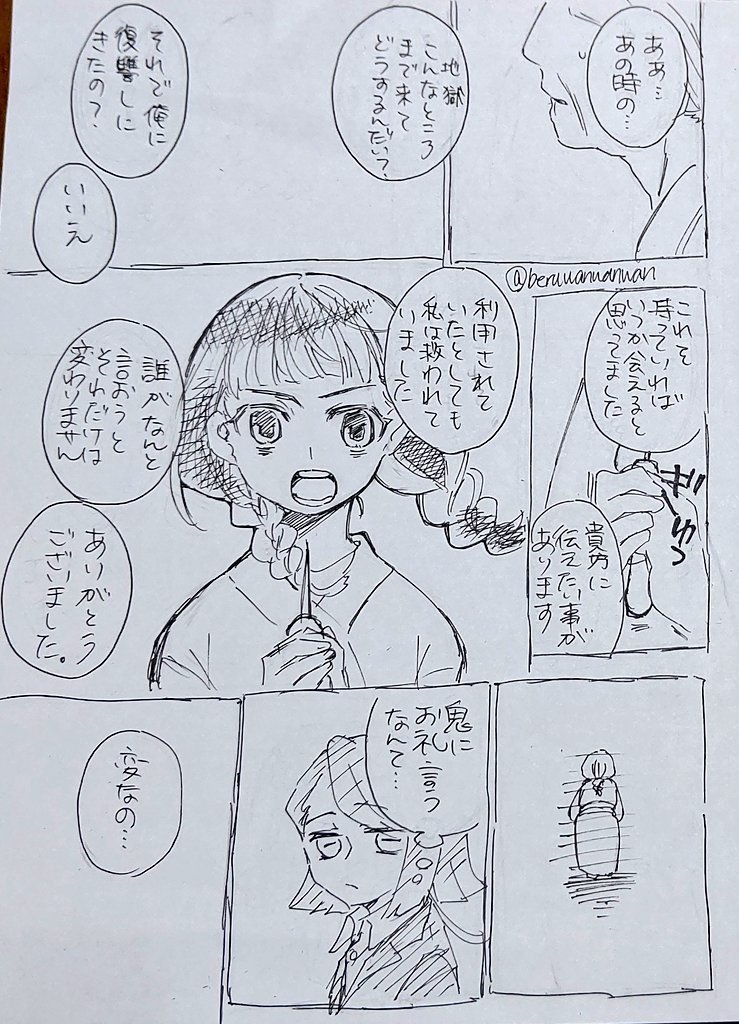 ああ…
あの時の…
地獄
こんなところ
まで来て
どうするんだい?
それで俺に
復讐しに
きたの?
いいえ
@beruuanuanuan
これを
持っていれば
いつか会えると
思ってました
ギ
ゅっ
貴方に
伝えたい事が
あります
利用されて
いたとしても
私は救われて
いました
誰がなんと
言おうと
それだけは
変わりません
ありがとう
ございました。
鬼に
お礼言う
なんて…
変なの…